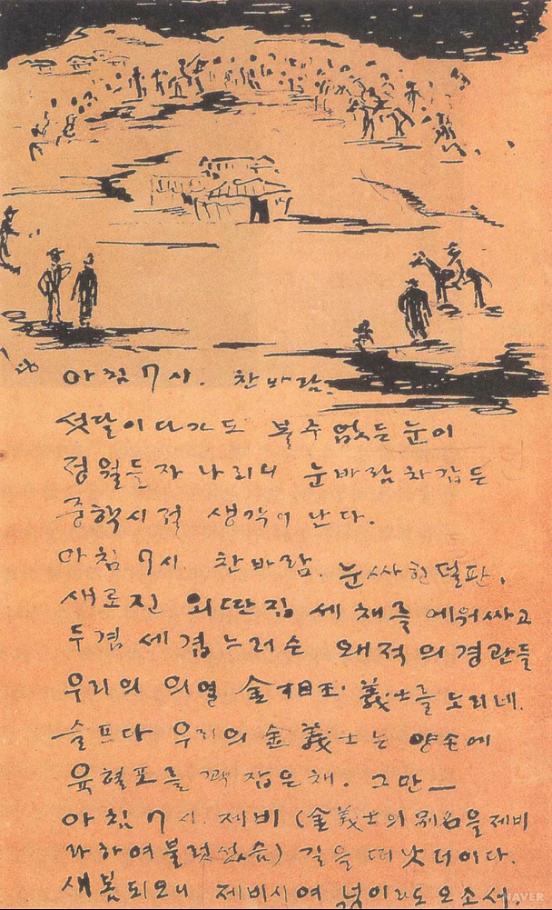 아침 7시. 찬바람.
섯달이 다가도 볼수 없든 눈이
정월들자 나리니 눈바람 차갑든
중학시절 생각이 난다.
아침 7시. 찬바람. 눈싸힌 벌판.
새로진 외딴집 세 채를 에워싸고
두겹 세겹 느러슨 왜적의 경관들
우리의 의열 金相玉 義士를 노리네.
슬프다 우리의 金義士는 양손에
육혈포를 꽉 잡은 채. 그만—
아침 7시. 제비 (金義士의 別名을 제비
라하여 불렀섰슴) 길을 떠낫더이다.
새봄되오니 제비시여 넋이라도 오소서.
NAVER